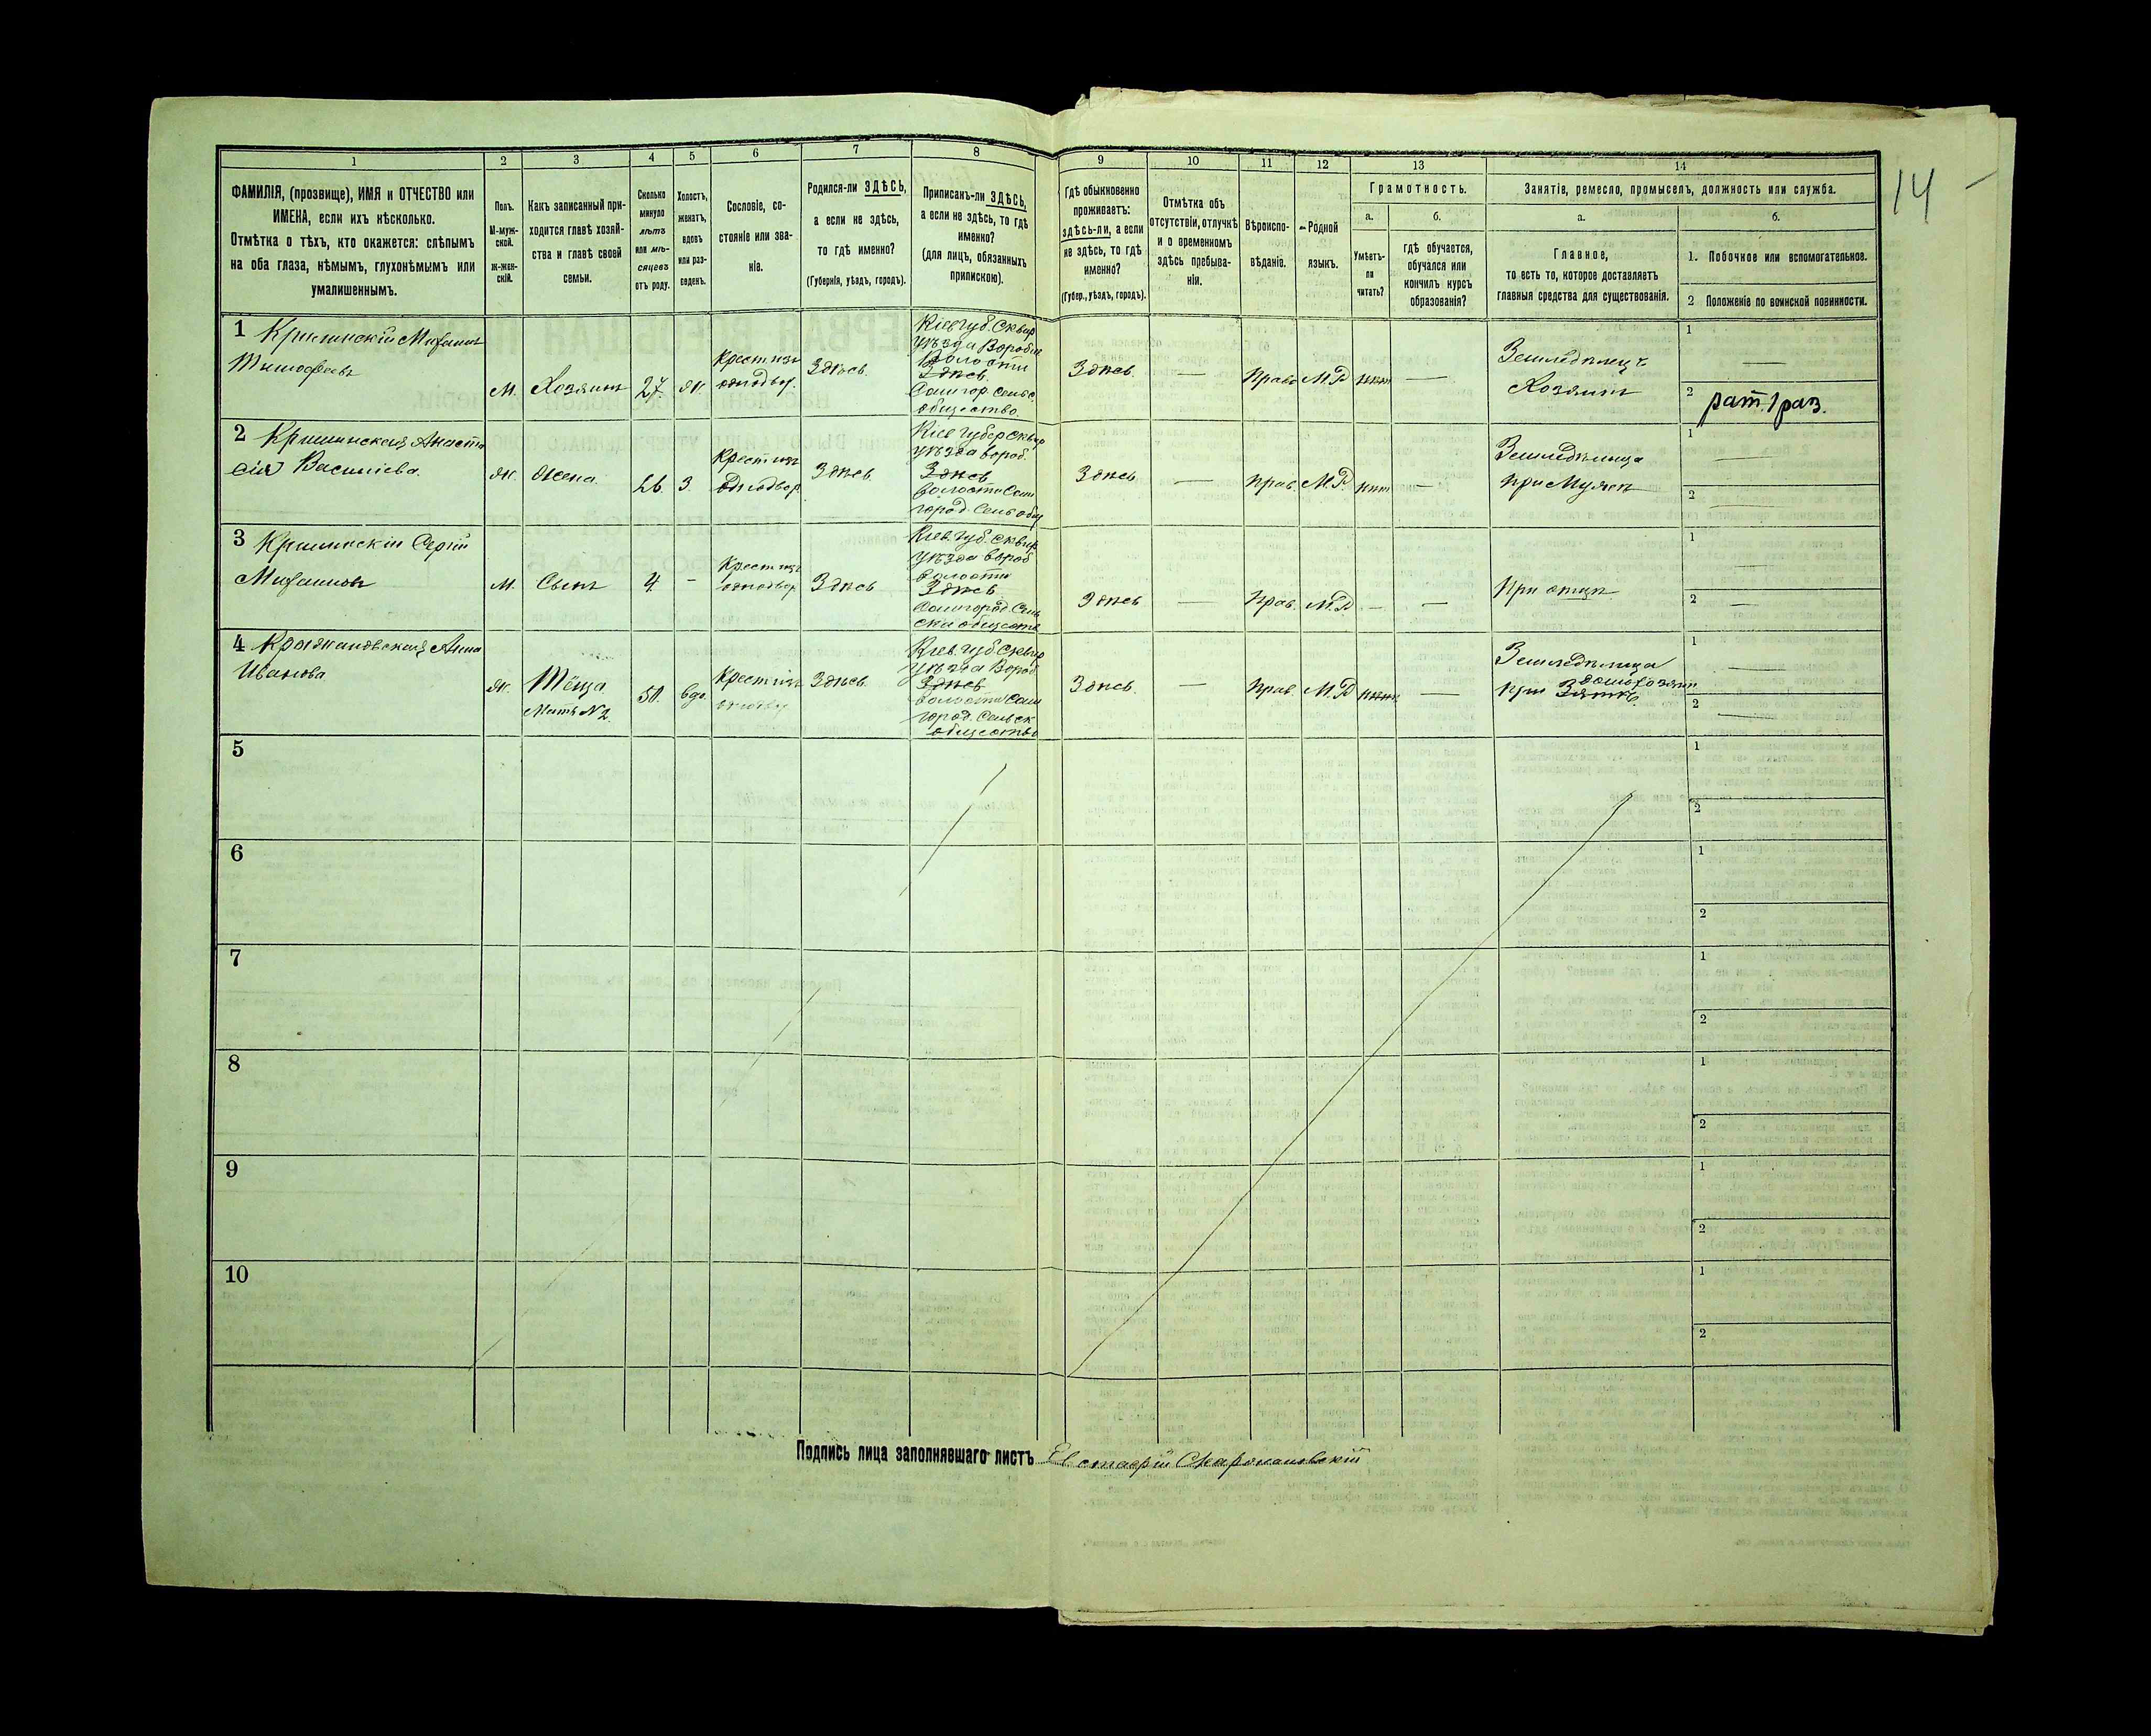 14
1 2 3 4 5 6 7 8 9 10 11 12 13 14
ФАМИЛІЯ, (прозвище), ИМЯ и ОТЧЕСТВО или
ИМЕНА, если ихъ нѣсколько.
Отмѣтка о тѣхъ, кто окажется: слѣпымъ
на оба глаза, нѣмымъ, глухонѣмымъ или
умалишеннымъ.
Полъ.
М-муж-
ской.
Ж-жен-
скій.
Какъ записанный при-
ходится главѣ хозяй-
ства и главѣ своей
семьи.
Сколько
минуло
лѣтъ
или мѣ-
сяцевъ
отъ роду.
Холостъ,
женатъ,
вдовъ
или раз-
веденъ.
Сословіе, со-
стояніе или зва-
ніе.
Родился-ли ЗДѢСЬ,
а если не здѣсь,
то гдѣ именно?
(Губернія, уѣздъ, городъ).
Приписанъ-ли ЗДѢСЬ,
а если не здѣсь, то гдѣ
именно?
(для лицъ, обязанныхъ
припискою).
Гдѣ обыкновенно
проживаетъ:
здѣсь-ли, а если
не здѣсь, то гдѣ
именно?
(Губер., уѣздъ, городъ).
Отмѣтка объ
отсутствіи, отлучкѣ
и о временномъ
здѣсь пребыва-
ніи.
Вѣроиспо-
вѣданіе.
Родной
языкъ.
Грамотность.
а.
Умѣетъ-
ли
читать?
б.
гдѣ обучается,
обучался или
кончилъ курсъ
образованія?
Занятіе, ремесло, промыселъ, должность или служба.
а.
Главное,
то есть то, которое доставляетъ
главныя средства для существованія.
б.
1. Побочное или вспомогательное.
2 Положеніе по воинской повинности.
1 Михаилъ
Тимофеевъ
М. Хозяинъ 27. ж. Крест изъ
однодвор. Здѣсь.
Кіев Губ. Сквир
уѣзда Вороб
Волости
Здѣсь.
Самгор. Сельс.
общество.
Здѣсь — Право М.Р. нѣт —
Земледѣлецъ
Хозяинъ
1 —
2 рат. 1 раз.
2 Анаста
сія Василіева.
ж. Жена 26 3. Крест изъ
однодвор Здѣсь.
Кіев Губер Сквир
уѣзда Вороб.
Здѣсь
волости Сам
город. Сель общ
Здѣсь — Прав. М.Р. нѣт —
Земледѣлица
при Мужѣ
1 —
2 —
3 Сергій
Михаиловъ
М. Сынъ 4 - Крест изъ
однодвор Здѣсь
Кіев. Губ. Сквир
уѣзда Вороб
волости
Здѣсь
Самгород. Сель
ски обществ
Здѣсь — Прав. М.Р. — —
При отцѣ
1 —
2 —
4 Анна
Иванова
ж. Тёща
Мать N 2.
50. вдо. Крест изъ
однодвор
Здѣсь.
Кіев. Губ. Сквир
уѣзда Вороб
Здѣсь
волости Сам
город. Сельск
общество
Здѣсь. — Прав. М.Р. нѣт —
Земледѣлица
домохозяин
при Зятѣ.
1 —
2 —
5 1
2
6 1
2
7 1
2
8 1
2
9 1
2
10 1
2
Подпись лица заполнявшаго листъ